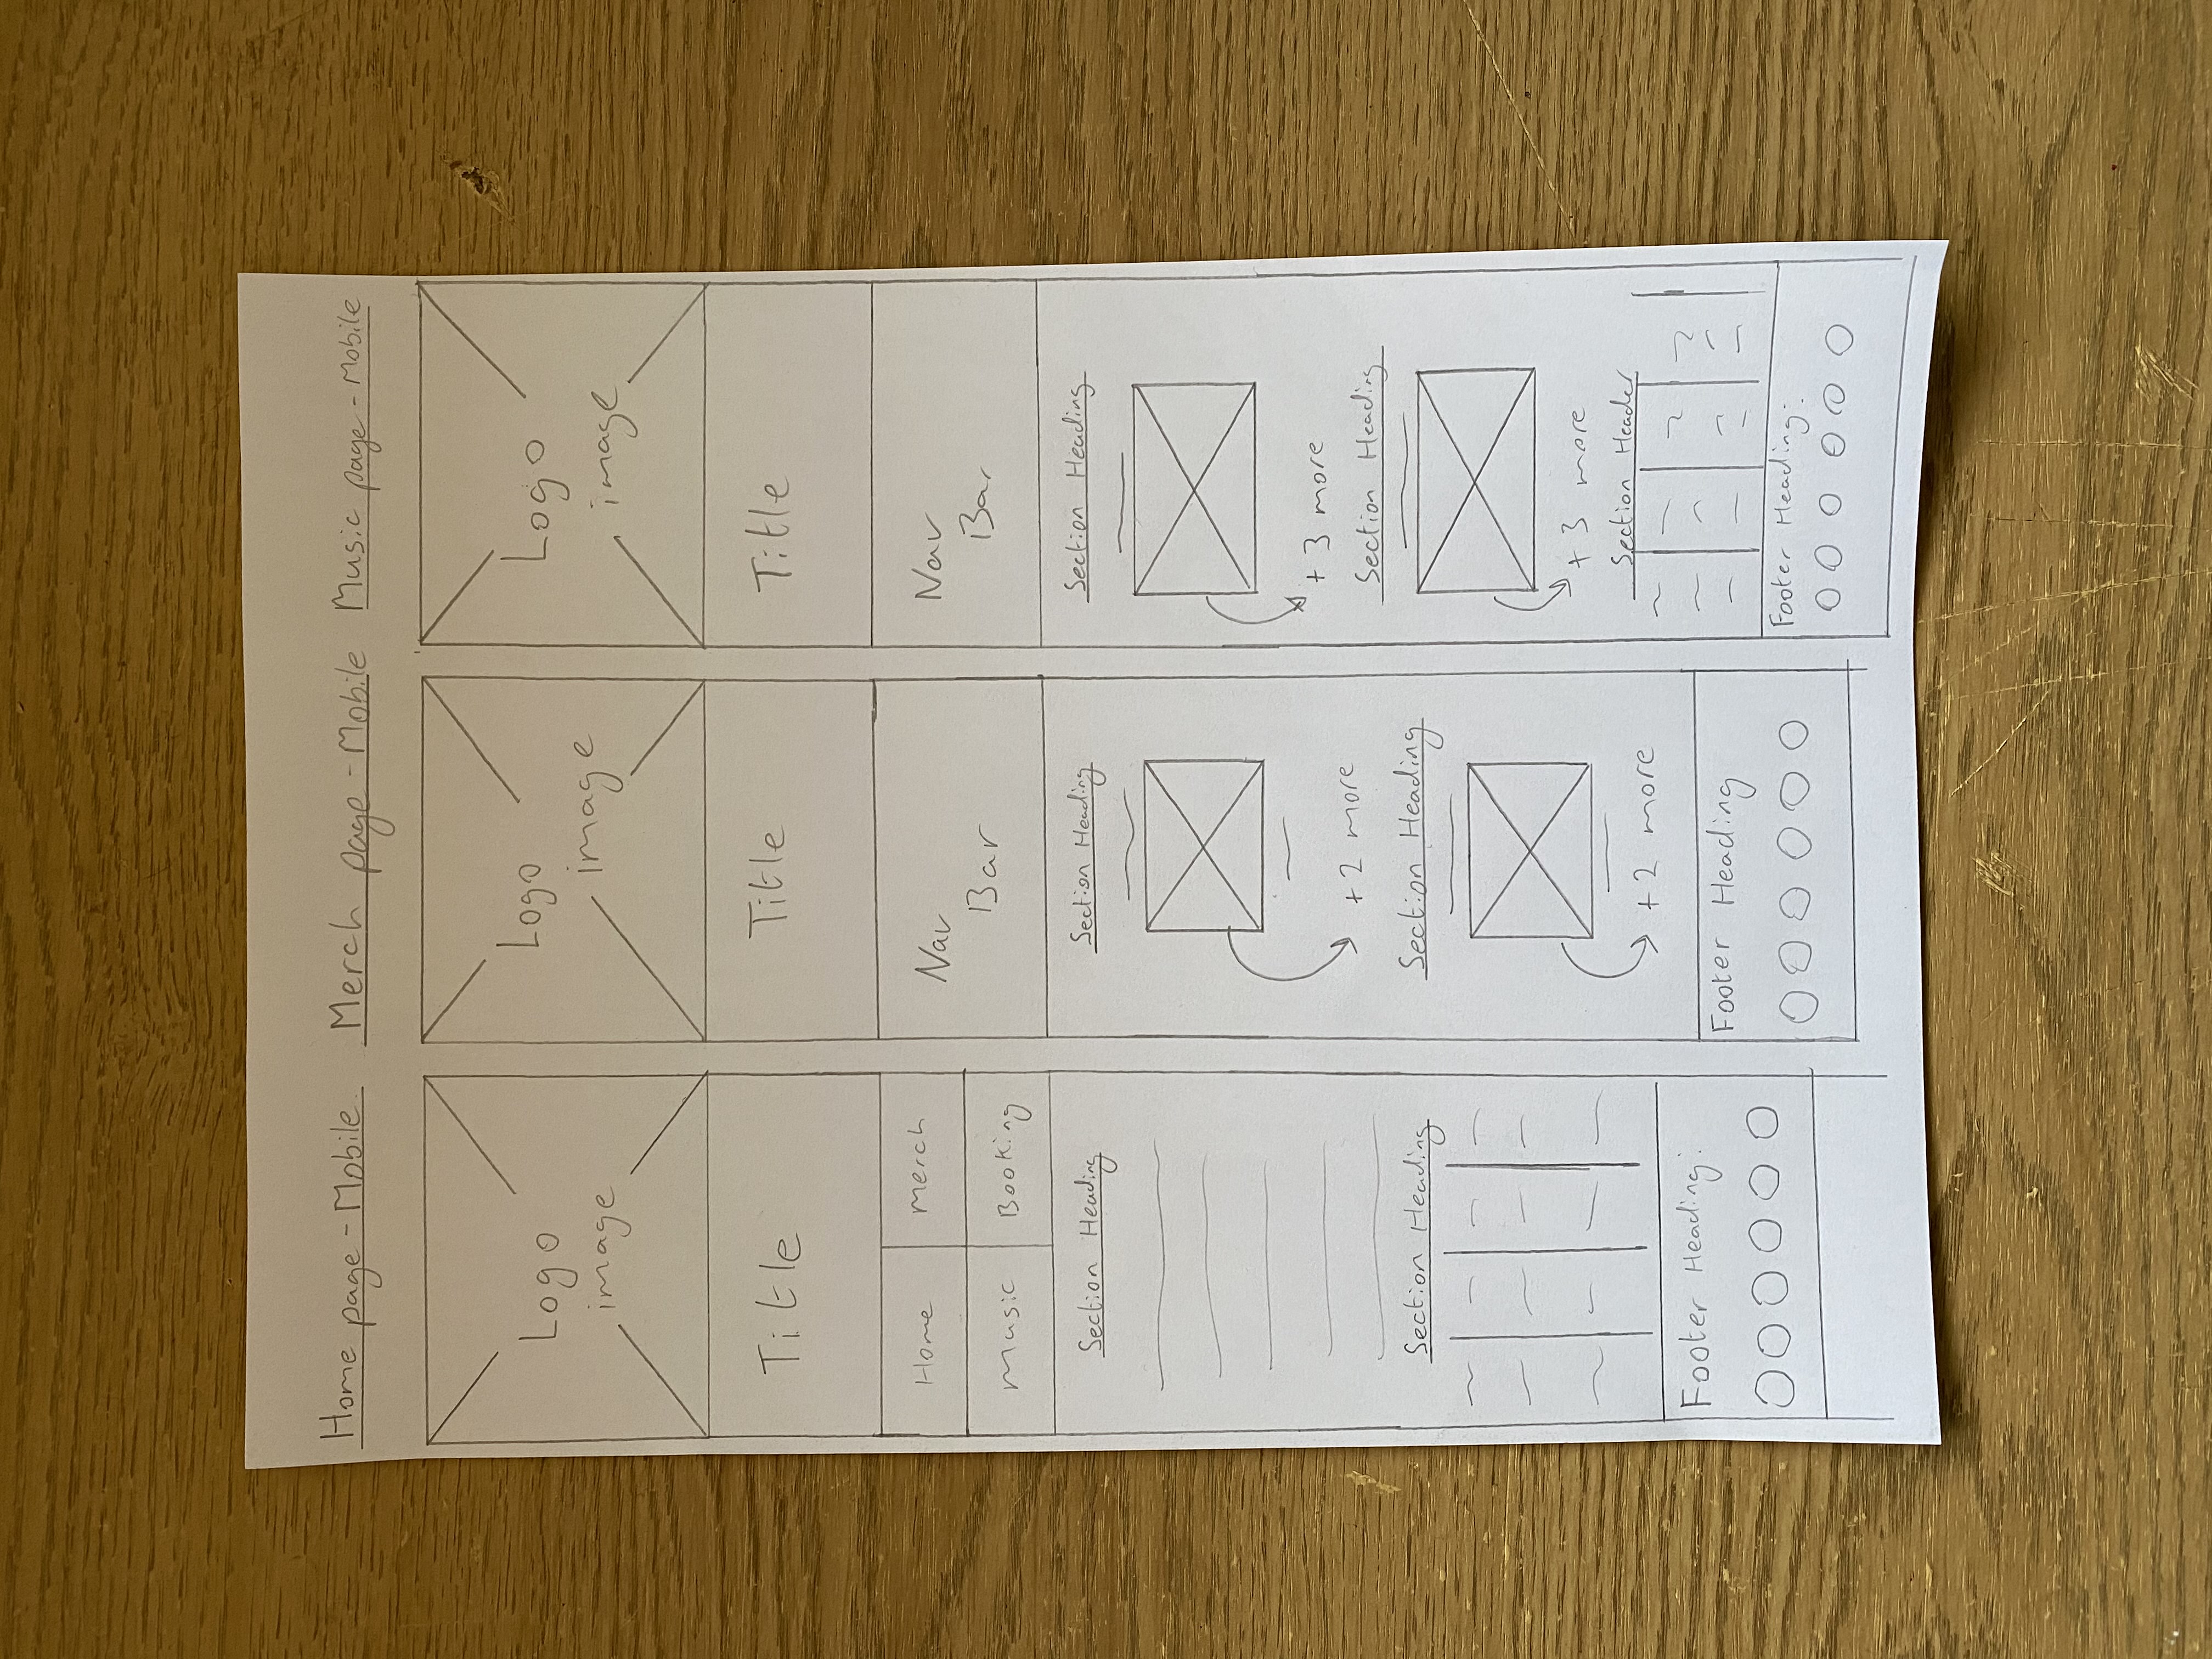 Home page - Mobile
Logo
image
Title
Home
Merch
Music
Booking
Section Heading
Section Heading
Footer Heading:
Merch page - Mobile
Logo
image
Title
Nav
Bar
Section Heading
+ 2 more
Section Heading
+ 2 more
Footer Heading
Music page - Mobile
Logo
image
Title
Nav
Bar
Section Heading
+ 3 more
Section Heading
+ 3 more
Section Header
Footer Heading: